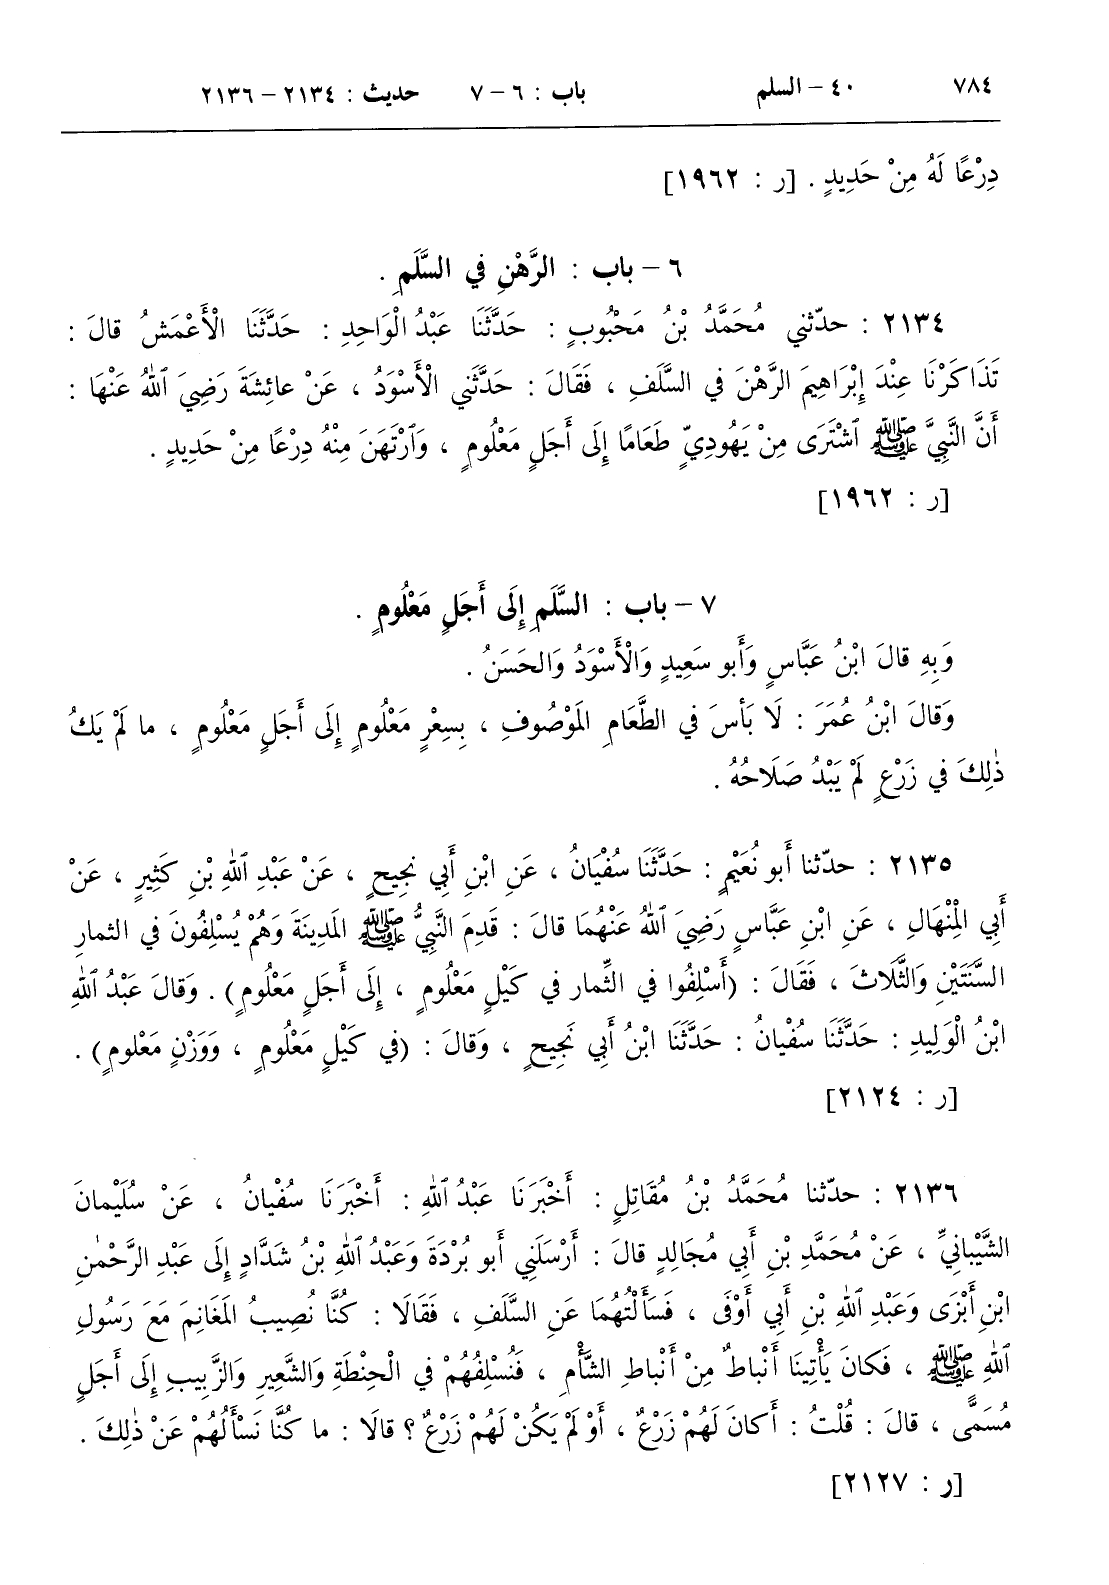 ٧٨٤ ٤٠ – السلم باب : ٦ – ٧ حديث : ٢١٣٤ – ٢١٣٦
دِرْعًا لَهُ مِنْ حَدِيدٍ . [ر : ١٩٦٢]
٦ – باب : الرَّهْنِ فِي السَّلَمِ .
٢١٣٤ : حدّثني مُحَمَّدُ بْنُ مَحْبُوبٍ : حَدَّثَنَا عَبْدُ الْوَاحِدِ : حَدَّثَنَا الْأَعْمَشُ قالَ :
تَذَاكَرْنَا عِنْدَ إِبْرَاهِيمَ الرَّهْنَ فِي السَّلَفِ ، فَقَالَ : حَدَّثَنِي الْأَسْوَدُ ، عَنْ عائِشَةَ رَضِيَ ٱللهُ عَنْهَا :
أَنَّ النَّبِيَّ ﷺ ٱشْتَرَى مِنْ يَهُودِيٍّ طَعَامًا إِلَى أَجَلٍ مَعْلُومٍ ، وَٱرْتَهَنَ مِنْهُ دِرْعًا مِنْ حَدِيدٍ .
[ر : ١٩٦٢]
٧ – باب : السَّلَمِ إِلَى أَجَلٍ مَعْلُومٍ .
وَبِهِ قالَ ابْنُ عَبَّاسٍ وَأَبو سَعِيدٍ وَالْأَسْوَدُ وَالحَسَنُ .
وَقالَ ابْنُ عُمَرَ : لَا بَأسَ فِي الطَّعَامِ المَوْصُوفِ ، بِسِعْرٍ مَعْلُومٍ إِلَى أَجَلٍ مَعْلُومٍ ، ما لَمْ يَكُ
ذٰلِكَ فِي زَرْعٍ لَمْ يَبْدُ صَلَاحُهُ .
٢١٣٥ : حدّثنا أَبو نُعَيْمٍ : حَدَّثَنَا سُفْيَانُ ، عَنِ ابْنِ أَبِي نَجِيحٍ ، عَنْ عَبْدِ ٱللهِ بْنِ كَثِيرٍ ، عَنْ
أَبِي الْمِنْهَالِ ، عَنِ ابْنِ عَبَّاسٍ رَضِيَ ٱللهُ عَنْهُمَا قالَ : قَدِمَ النَّبِيُّ ﷺ المَدِينَةَ وَهُمْ يُسْلِفُونَ فِي الثمارِ
السَّنَتَيْنِ وَالثَّلَاثَ ، فَقَالَ : (أَسْلِفُوا فِي الثِّمار فِي كَيْلٍ مَعْلُومٍ ، إِلَى أَجَلٍ مَعْلُومٍ) . وَقالَ عَبْدُ ٱللهِ
ابْنُ الْوَلِيدِ : حَدَّثَنَا سُفْيانُ : حَدَّثَنَا ابْنُ أَبِي نَجِيحٍ ، وَقالَ : (فِي كَيْلٍ مَعْلُومٍ ، وَوَزْنٍ مَعْلومٍ) .
[ر : ٢١٢٤]
٢١٣٦ : حدّثنا مُحَمَّدُ بْنُ مُقَاتِلٍ : أَخْبَرَنَا عَبْدُ ٱللهِ : أَخْبَرَنَا سُفْيانُ ، عَنْ سُلَيْمانَ
الشَّيْبانِيِّ ، عَنْ مُحَمَّدِ بْنِ أَبِي مُجَالِدٍ قالَ : أَرْسَلَنِي أَبو بُرْدَةَ وَعَبْدُ ٱللهِ بْنُ شَدَّادٍ إِلَى عَبْدِ الرَّحْمٰنِ
ابْنِ أَبْزَى وَعَبْدِ ٱللهِ بْنِ أَبِي أَوْفَى ، فَسَأَلْتُهُمَا عَنِ السَّلَفِ ، فَقَالَا : كُنَّا نُصِيبُ المَغَانِمَ مَعَ رَسُولِ
ٱللهِ ﷺ ، فَكانَ يَأْتِينَا أَنْباطٌ مِنْ أَنْباطِ الشَّأْمِ ، فَنُسْلِفُهُمْ فِي الْحِنْطَةِ وَالشَّعِيرِ وَالزَّبِيبِ إِلَى أَجَلٍ
مُسَمًّى ، قالَ : قُلْتُ : أَكانَ لَهُمْ زَرْعٌ ، أَوْ لَمْ يَكُنْ لَهُمْ زَرْعٌ ؟ قالَا : ما كُنَّا نَسْأَلُهُمْ عَنْ ذٰلِكَ .
[ر : ٢١٢٧]